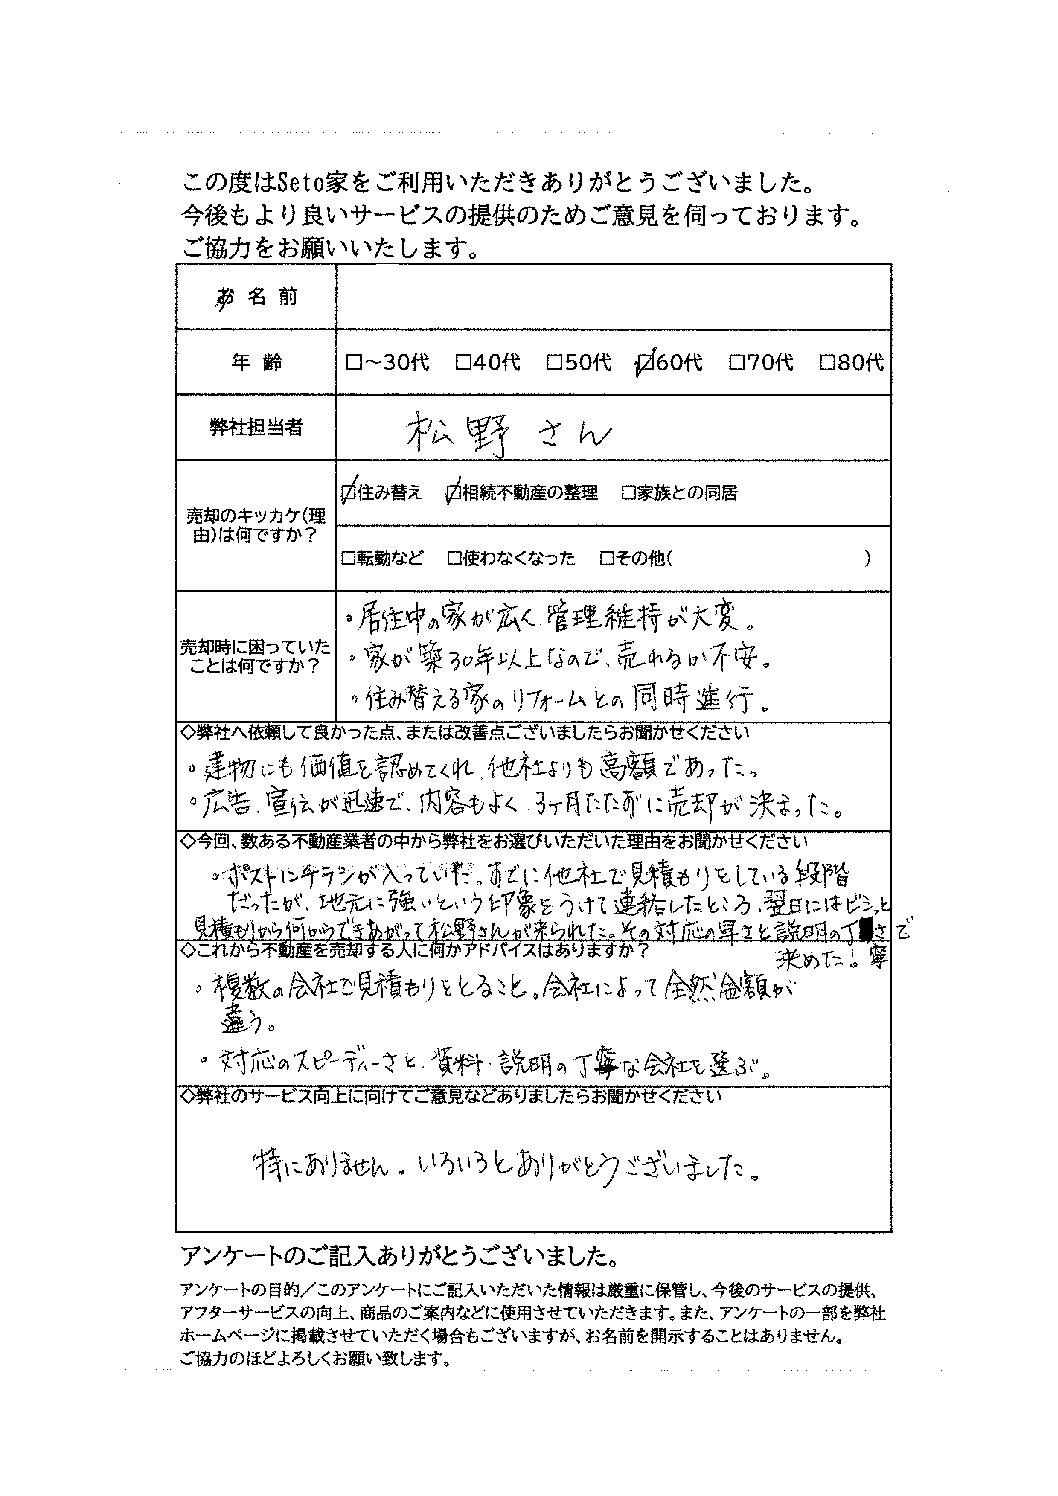 この度はSeto家をご利用いただきありがとうございました。
今後もより良いサービスの提供のためご意見を伺っております。
ご協力をお願いいたします。
お名前
年齢 □～30代 □40代 □50代 ☑60代 □70代 □80代
弊社担当者 松野さん
売却のキッカケ(理由)は何ですか？
☑住み替え ☑相続不動産の整理 □家族との同居
□転勤など □使わなくなった □その他( )
売却時に困っていた
ことは何ですか？
。居住中の家が広く、管理維持が大変。
。家が築30年以上なので、売れるか不安。
。住み替える家のリフォームとの同時進行。
◇弊社へ依頼して良かった点、または改善点ございましたらお聞かせください
。建物にも価値を認めてくれ、他社よりも高額であった。
。広告、宣伝が迅速で、内容もよく、3ヶ月たたずに売却が決まった。
◇今回、数ある不動産業者の中から弊社をお選びいただいた理由をお聞かせください
。ポストにチラシが入っていた。すでに他社で見積もりをしている段階
だったが、地元に強いという印象をうけて連絡したところ、翌日にはビシっと
見積もりから何からできあがって松野さんが来られた。その対応の早さと説明の丁寧さで
決めた！
◇これから不動産を売却する人に何かアドバイスはありますか？
。複数の会社で見積もりをとること。会社によって全然金額が
違う。
。対応のスピーディーさと、資料・説明の丁寧な会社を選ぶ。
◇弊社のサービス向上に向けてご意見などありましたらお聞かせください
特にありません。いろいろとありがとうございました。
アンケートのご記入ありがとうございました。
アンケートの目的／このアンケートにご記入いただいた情報は厳重に保管し、今後のサービスの提供、
アフターサービスの向上、商品のご案内などに使用させていただきます。また、アンケートの一部を弊社
ホームページに掲載させていただく場合もございますが、お名前を開示することはありません。
ご協力のほどよろしくお願い致します。